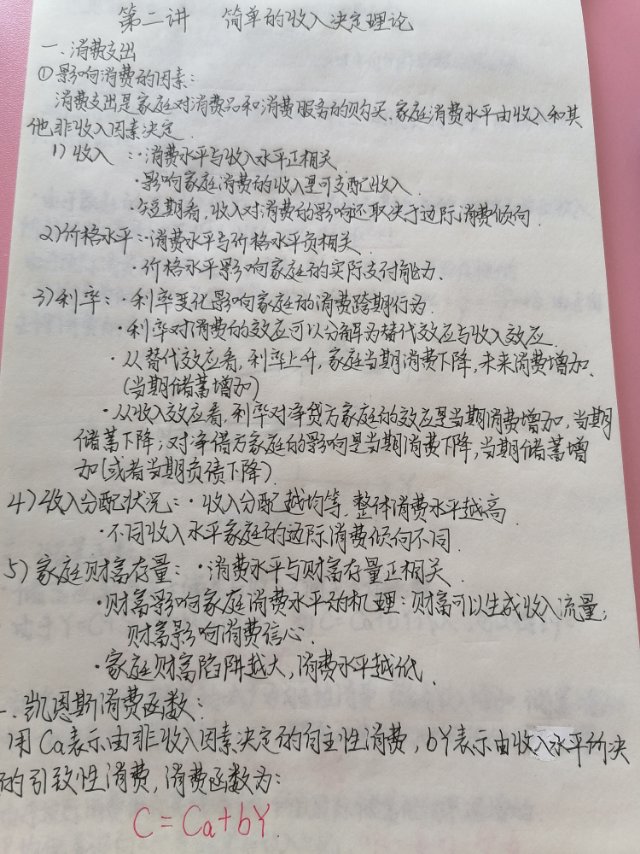 第二讲 简单的收入决定理论
一.消费支出
①影响消费的因素:
消费支出是家庭对消费品和消费服务的购买、家庭消费水平由收入和其
他非收入因素决定.
1)收入:·消费水平与收入水平正相关.
·影响家庭消费的收入是可支配收入.
·短期看,收入对消费的影响还取决于边际消费倾向.
2)价格水平:·消费水平与价格水平负相关.
·价格水平影响家庭的实际支付能力.
3)利率:·利率变化影响家庭的消费跨期行为.
·利率对消费的效应可以分解为替代效应与收入效应.
·从替代效应看,利率上升,家庭当期消费下降,未来消费增加.
(当期储蓄增加)
·从收入效应看,利率对净贷方家庭的效应是当期消费增加,当期
储蓄下降;对净借方家庭的影响是当期消费下降,当期储蓄增
加(或者当期负债下降).
4)收入分配状况:·收入分配越均等.整体消费水平越高.
·不同收入水平家庭的边际消费倾向不同.
5)家庭财富存量:·消费水平与财富存量正相关.
·财富影响家庭消费水平的机理:财富可以生成收入流量;
财富影响消费信心.
·家庭财富陷阱越大,消费水平越低.
.凯恩斯消费函数:
用Ca表示由非收入因素决定的自主性消费,bY表示由收入水平所决
的引致性消费,消费函数为:
C=Ca+bY.